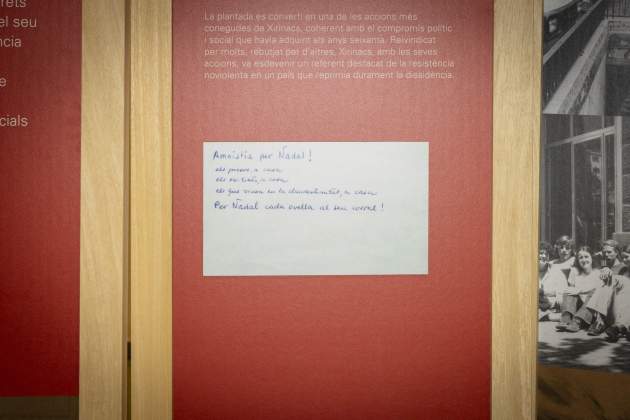 rets
el seu
ència
e
cials
La plantada es convertí en una de les accions més
conegudes de Xirinacs, coherent amb el compromís polític
i social que havia adquirit els anys seixanta. Reivindicat
per molts, rebutjat per d'altres, Xirinacs, amb les seves
accions, va esdevenir un referent destacat de la resistència
noviolenta en un país que reprimia durament la dissidència.
Amnistia per Nadal!
els presos, a casa
els exiliats, a casa
els que viuen en la clandestinitat, a casa
Per Nadal cada ovella al seu corral!